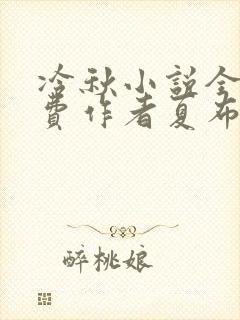 冷秋小説全
費作者夏布
醉桃娘